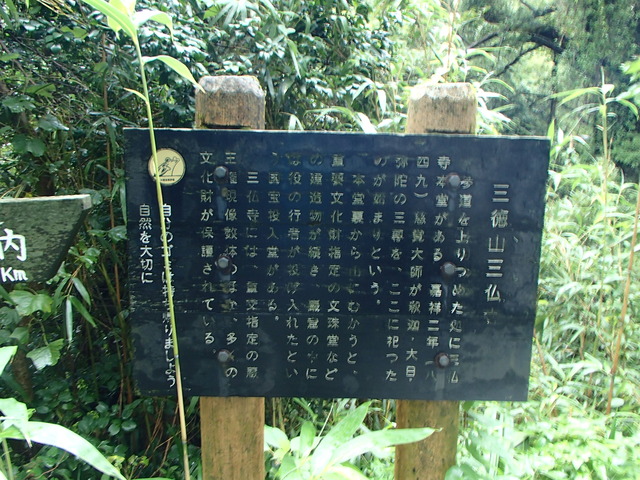 三徳山三仏
参道を上りつめた処に三仏
寺本堂がある。嘉祥二年(八
四九)慈覚大師が釈迦・大日・
弥陀の三尊を、ここに祀った
のが始まりという。
本堂裏から山にむかうと、
重要文化財指定の文殊堂など
の建造物が続き、
に
役の行者が投げ入れたとい
う国宝投入堂がある。
三仏寺には、重文指定の蔵
王権現像数体のほか、多くの
文化財が保護されている
自分のゴミは持ち帰りましょう
自然を大切に
内
Km